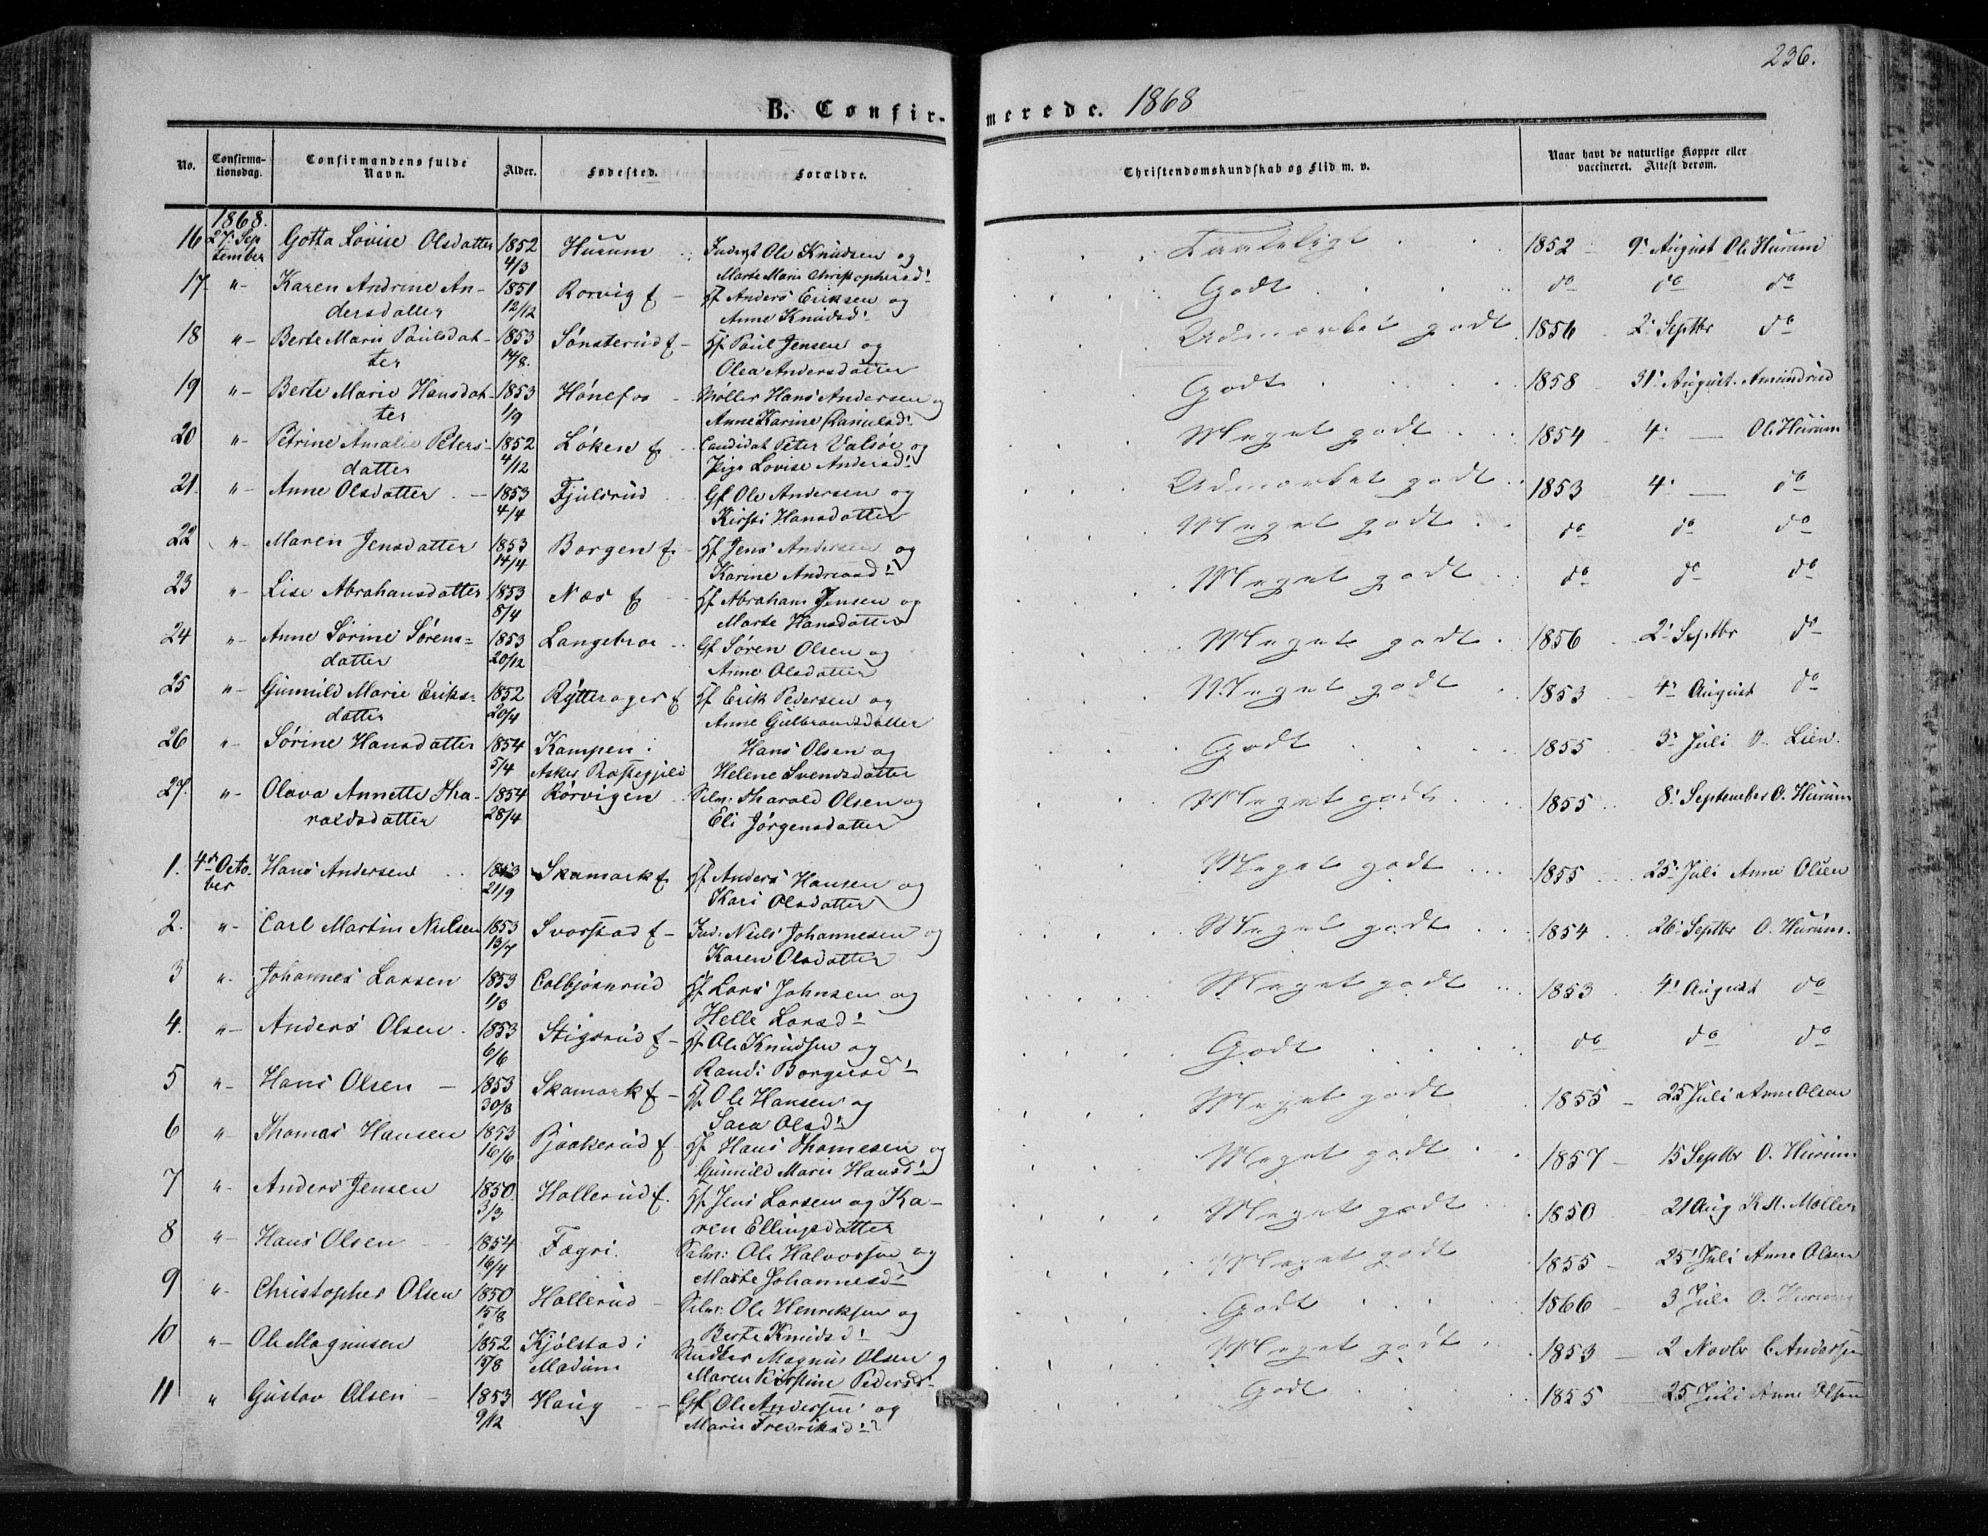 236.
B. Confirmerede. 1868
No. Confirmationsdag. Confirmandens fulde Navn. Alder. Fødested. Forældre. Christendomskundskab og Flid m. v. Naar havt de naturlige Kopper eller vaccineret. Attest derom.
1868.
16 27. September Gotta Lovise Olsdatter 1852 4/3 Hurum Ole Knudsen og Taaleligt 1852 9' August Ole Hurum
Marte Marie Christophersd!
17 " Karen Andrine Andersdatter 1851 12/12 Rorvig f Gf Anders Eriksen og Godt do do do
Anne Knudsd!
18 " Berte Marie Paulsdatter 1853 14/8. Sønsterud f Gf Paul Jensen og Udmærket godt 1856 2' Septbr do
Olea Andersdatter
19 " Berte Marie Hansdatter 1853 1/9 Hønefos Møller Hans Andersen og Godt 1858 31' August. Amundrud
Anne Karine Danielsd!
20 " Petrine Amalie Petersdatter 1852 4/12 Løken f Candidat Peter Valsøe og Meget godt 1854 4' — Ole Hurum
Pige Lovise Andersd!
21. " Anne Olsdatter 1853 4/4 Fjuldrud Gf Ole Andersen og Udmærket godt 1853 4' — do
Kirsti Hansdatter
22 " Maren Jensdatter 1853 14/4 Borgen f Gf Jens Andersen og Meget godt do do do
Karine Andreasd!
23 " Lise Abrahamsdatter 1853 8/4 Næs f Gf Abraham Jensen og Meget godt do do do
Marte Hansdatter
24 " Anne Sørine Sørensdatter 1853 20/12 Langebroe Gf Søren Olsen og Meget godt 1856 2' Septbr do
Anne Olsdatter
25 " Gunnild Marie Eriksdatter 1852 20/4 Rytterager f Gf Erik Pedersen og Meget godt 1853 4' August do
Anne Gulbrandsdatter
26 " Sørine Hansdatter 1854 5/4 Kampen i Asker Præstegjeld Hans Olsen og Godt 1855 3' Juli O. Lien.
Helene Svendsdatter
27. " Olava Annette Tharaldsdatter 1854 28/4 Rørvigen Selv: Tharald Olsen og Meget godt 1855 8' September O. Hurum
Eli Jørgensdatter
1. 4de October Hans Andersen 1853 21/9 Skamark f Gf Anders Hansen og Meget godt 1855 25' Juli Anne Olsen
Kari Olsdatter
2. " Carl Martin Nilsen 1853 13/7 Svarstad f Ind: Niels Johannesen og Meget godt 1854 26' Septbr O. Hurum.
Karen Olsdatter
3 " Johannes Larsen 1853 1/3 Colbjørnrud Gf Lars Johnsen og Meget godt 1853 4' August do
Helle Larsd!
4. " Anders Olsen 1853 6/6 Stigsrud f Gf Ole Knudsen og Godt do do do
Randi Borgersd!
5 " Hans Olsen 1853 30/8 Skamark f Gf Ole Hansen og Meget godt 1855 25 Juli Anne Olsen
Sara Olsd!
6 " Thomas Hansen 1853 16/6 Bjaakerud f Gf Hans Thomesen og Meget godt 1857 15 Septbr O. Hurum
Gunnild Marie Hansd!
7 " Anders Jensen 1850. 3/3 Hollerud f. Gf Jens Larsen og Karen Ellingsdatter Meget godt 1850 21 Aug K M. Møller
8 " Hans Olsen 1854 16/4 Fægri. Selv: Ole Halvorsen og Meget godt 1855 25' Juli Anne Olsen
Marte Johannesd!
9 " Christopher Olsen 1850 15/8 Hollerud Selv: Ole Henriksen og Godt 1866 3 Juli O. Hurum
Berte Knudsd!
10 " Ole Magnusen 1852 15/8 Kjølstad i Modum Magnus Olsen og Meget godt 1853 2 Novbr C Andersen
Maren Kirstine Pedersd!
11 " Gustav Olsen 1853 9/12 Haug Gf Ole Andersen og Godt 1855 25 Juli Anne Olsen
Marie Fredriksd!